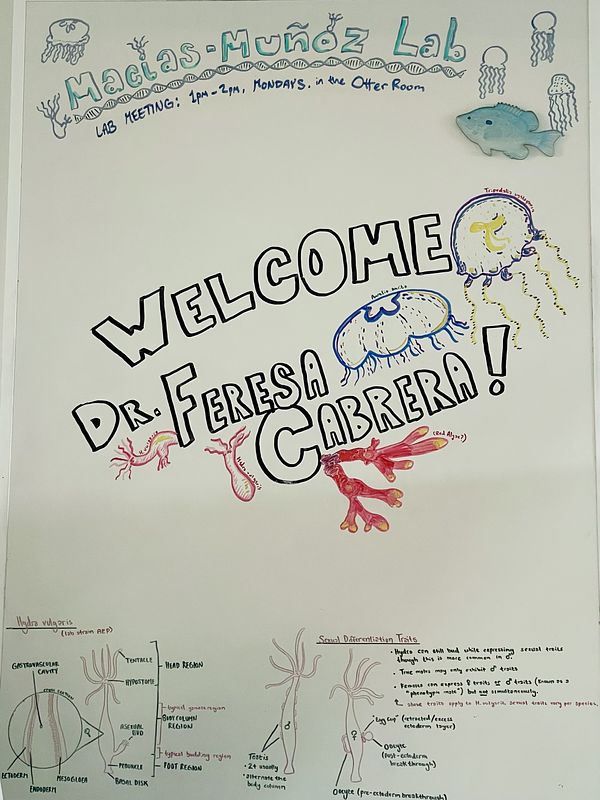 Macias-Muñoz Lab
LAB MEETING: 1PM-2PM, MONDAYS. in the Otter Room
WELCOME
DR. FERESA
CABRERA!
Aurelia
Hydra vulgaris
(Red Algae?)
Hydra vulgaris
(lab strain AEP)
GASTROVASCULAR
CAVITY
cross section
ECTODERM
ENDODERM
MESOGLOEA
TENTACLE
HYPOSTOME
HEAD REGION
typical gonad region
BODY COLUMN
REGION
ASEXUAL
BUD
typical budding region
PEDUNCLE
FOOT REGION
BASAL DISK
Sexual Differentiation Traits
• Hydra can still bud while expressing sexual traits
though this is more common in ♂.
• True males may only exhibit ♂ traits
• Females can express ♀ traits or ♂ traits (known as a
"phenotypic male") but not simultaneously.
↳ these traits apply to H. vulgaris, sexual traits vary per species.
♂
Testis
• 2+ usually
• alternate the
body column
♀
"Egg Cup" (retracted/excess
ectoderm layer)
Oocyte
(post-ectoderm
breakthrough)
Oocyte (pre-ectoderm breakthrough)